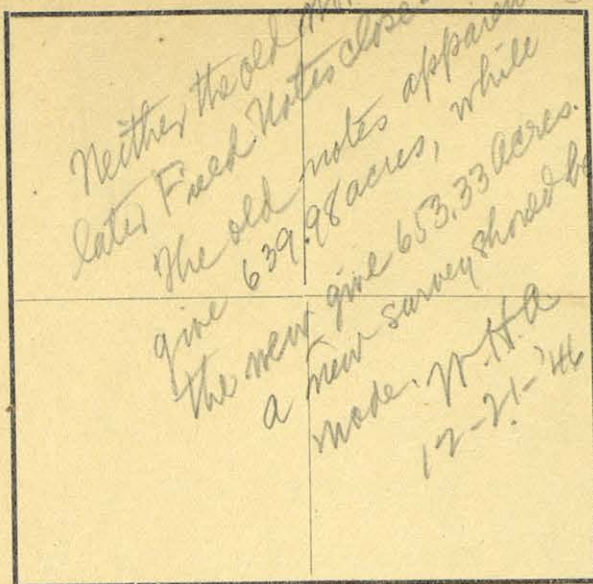 Neither the old
later Field Notes close.
The old notes
give 639.98 acres, while
the new give 653.33 acres.
a new survey should be
made. W.H.A.
12-21-'46